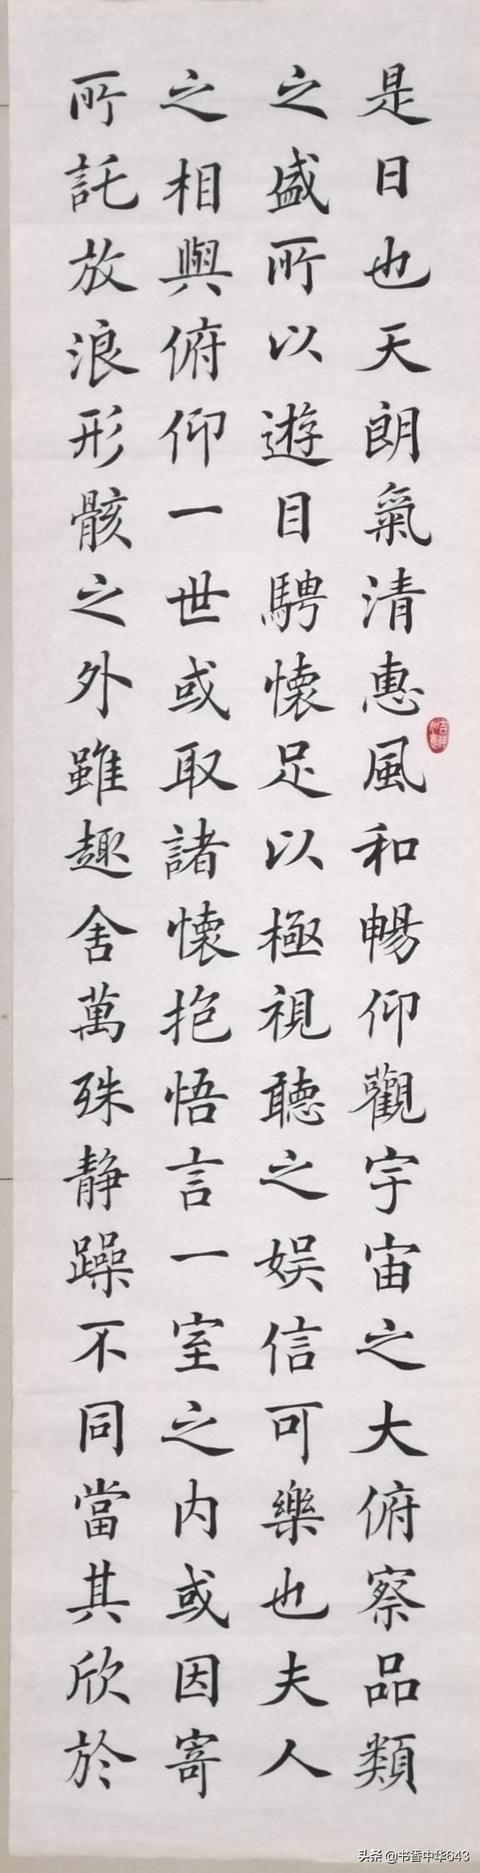 是日也天朗氣清惠風和暢仰觀宇宙之大俯察品類
之盛所以遊目騁懷足以極視聽之娱信可樂也夫人
之相與俯仰一世或取諸懷抱悟言一室之内或因寄
所託放浪形骸之外雖趣舍萬殊静躁不同當其欣於
吉祥如意
头条 @书香中华643